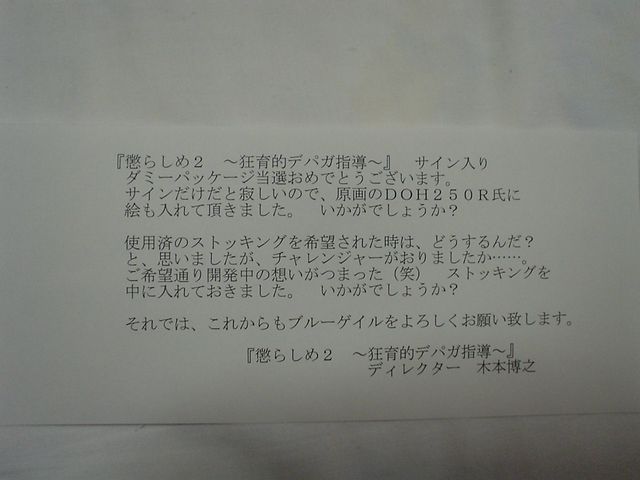 『懲らしめ２　～狂育的デパガ指導～』　サイン入り
ダミーパッケージ当選おめでとうございます。
サインだけだと寂しいので、原画のＤＯＨ２５０Ｒ氏に
絵も入れて頂きました。　いかがでしょうか？
使用済のストッキングを希望された時は、どうするんだ？
と、思いましたが、チャレンジャーがおりましたか……。
ご希望通り開発中の想いがつまった（笑）　ストッキングを
中に入れておきました。　いかがでしょうか？
それでは、これからもブルーゲイルをよろしくお願い致します。
『懲らしめ２　～狂育的デパガ指導～』
ディレクター　木本博之